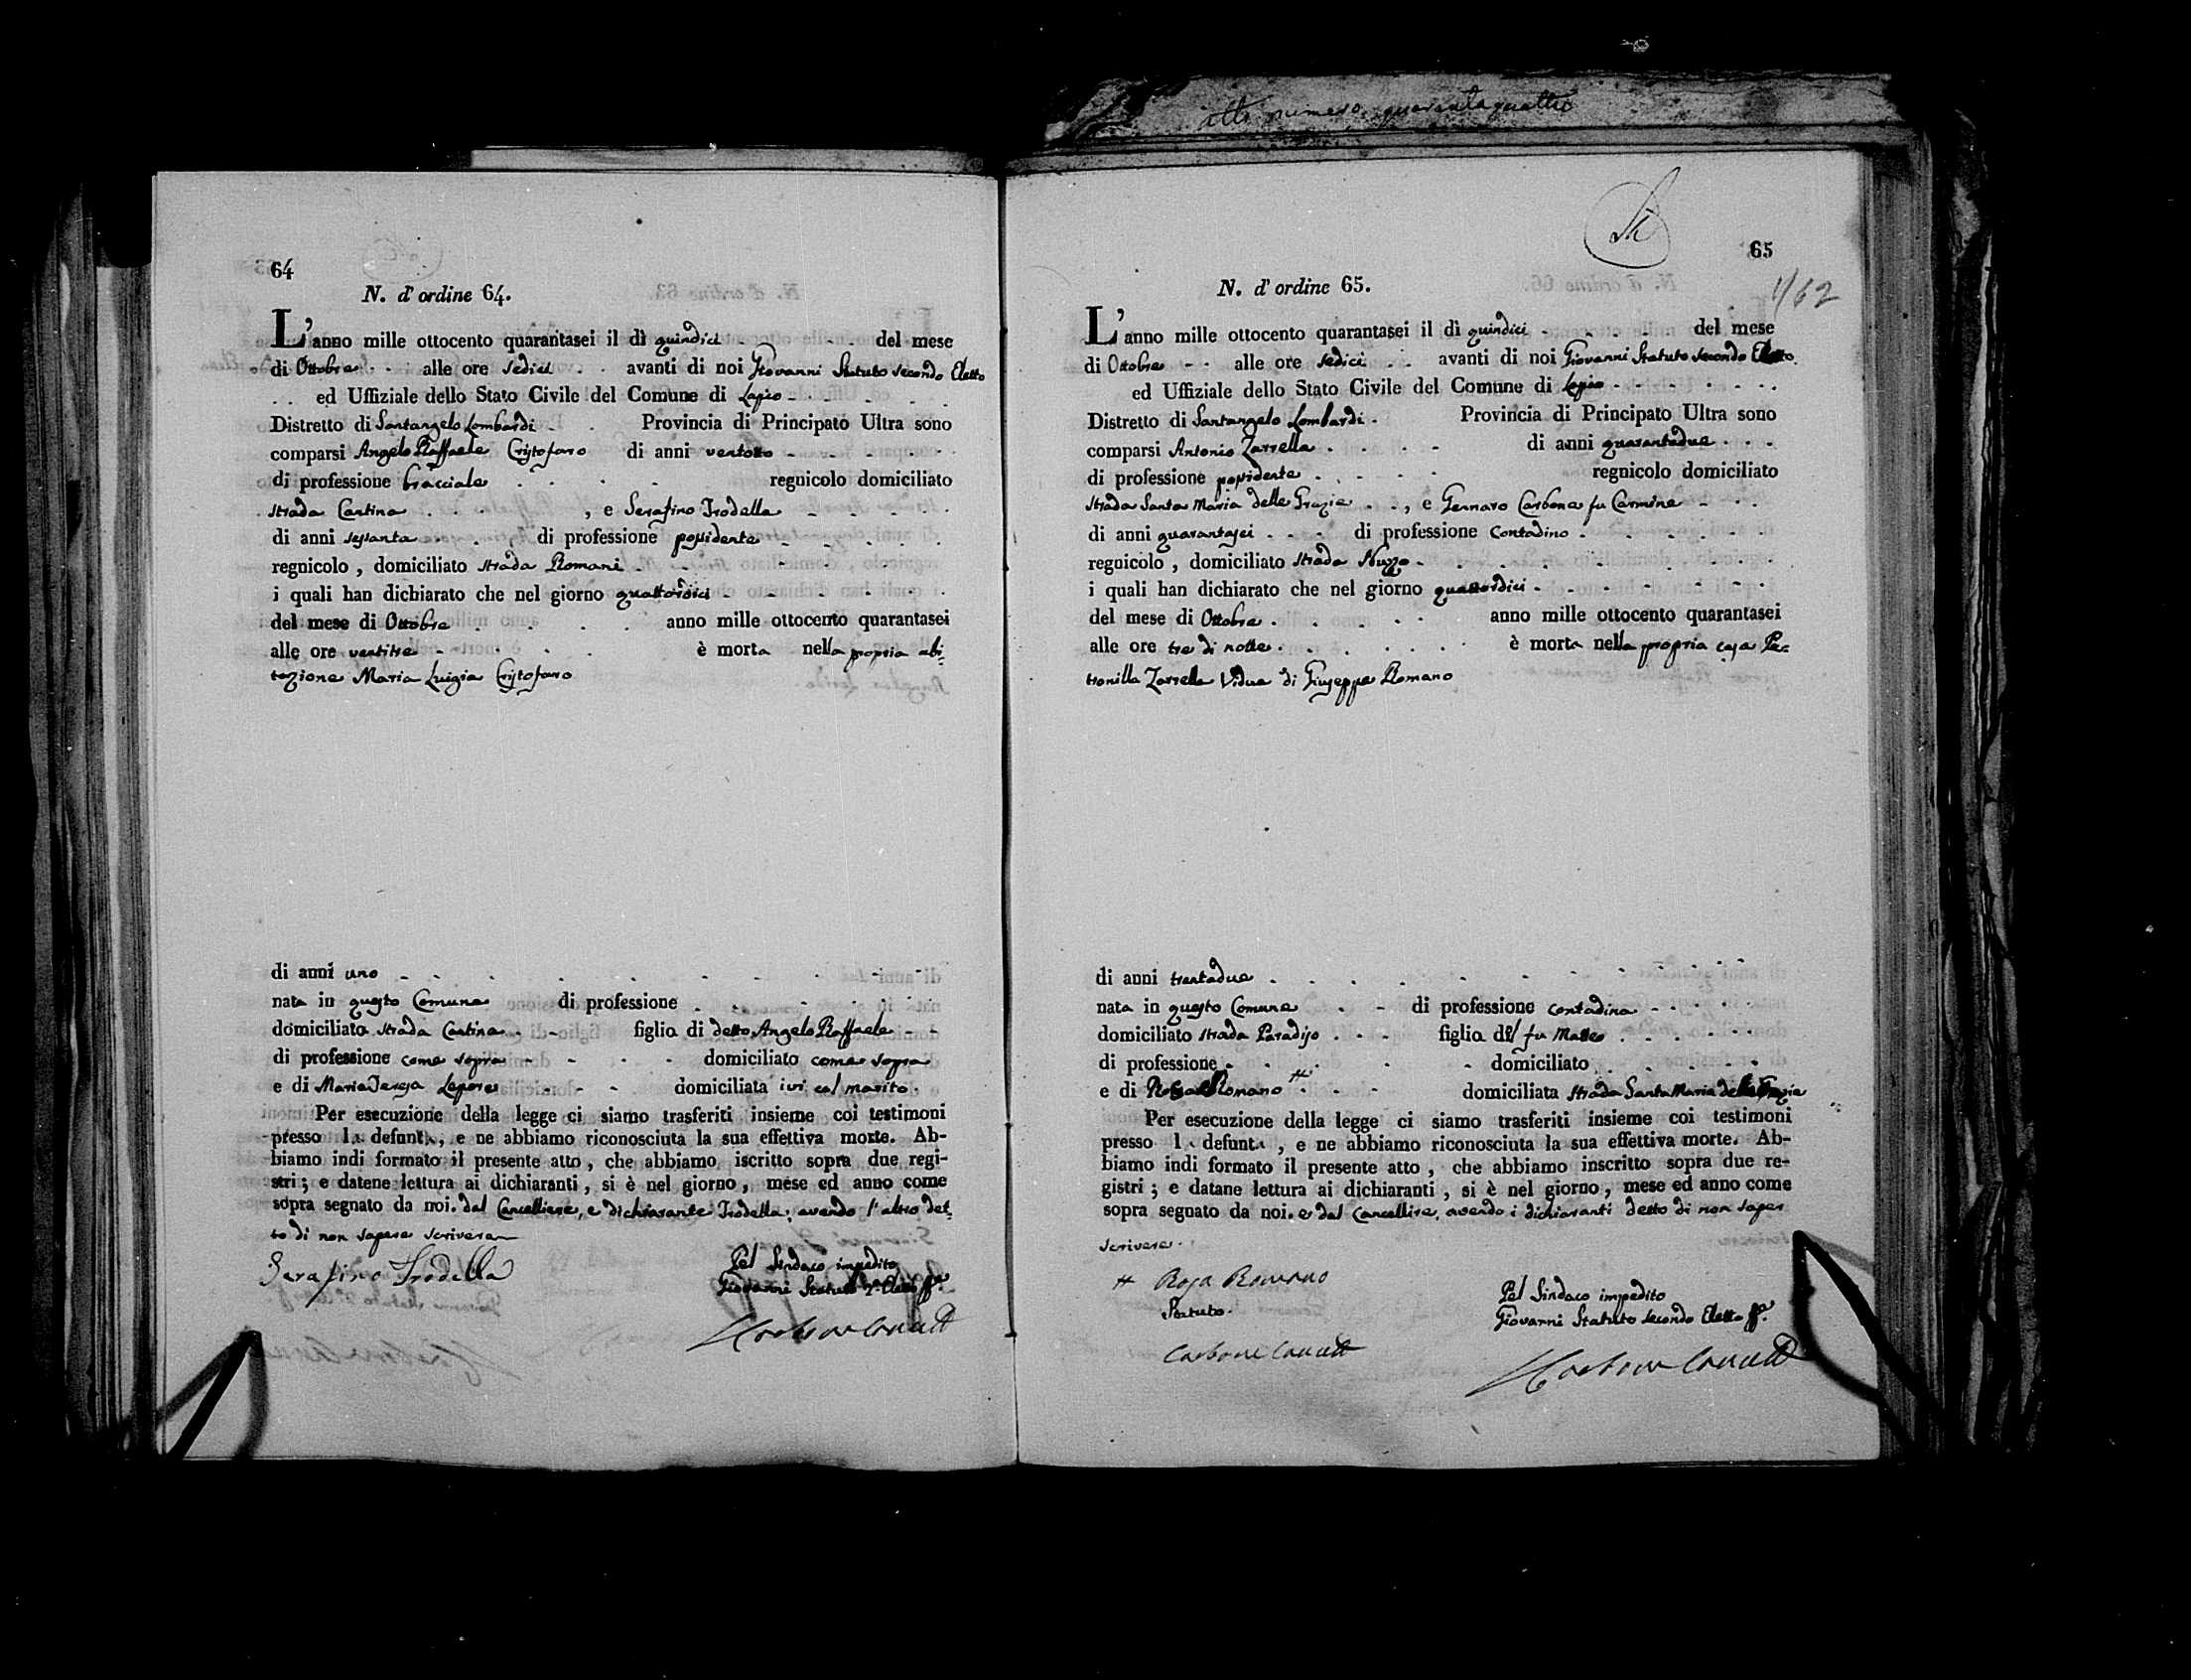 atto numero quarantaquattro
64
N. d' ordine 64.
L'anno mille ottocento quarantasei il dì quindici - - del mese
di Ottobre - alle ore sedici - - avanti di noi Giovanni Statuto secondo Eletto
ed Uffiziale dello Stato Civile del Comune di Lapio -
Distretto di Santangelo Lombardi - Provincia di Principato Ultra sono
comparsi Angelo Raffaele Cristofano di anni ventotto -
di professione bracciale regnicolo domiciliato
strada Cantina , e Serafino Trodella
di anni sessanta , di professione possidente
regnicolo , domiciliato strada Romani
i quali han dichiarato che nel giorno quattordici
del mese di Ottobre anno mille ottocento quarantasei
alle ore ventitre è morta nella propria abi=
tazione Maria Luigia Cristofano
di anni uno
nata in questo Comune di professione
domiciliata strada Cantina figlia di detto Angelo Raffaele
di professione come sopra domiciliato come sopra
e di Maria Teresa Lepore domiciliata ivi col marito.
Per esecuzione della legge ci siamo trasferiti insieme coi testimoni
presso la defunta, e ne abbiamo riconosciuta la sua effettiva morte. Ab-
biamo indi formato il presente atto , che abbiamo iscritto sopra due regi-
stri ; e datene lettura ai dichiaranti , si è nel giorno , mese ed anno come
sopra segnato da noi. dal Cancelliere, e dichiarante Trodella; avendo l'altro det=
to di non sapere scrivere
Serafino Trodella
Pel Sindaco impedito
Giovanni Statuto 2° Eletto ff.
65
1/62
N. d' ordine 65.
L'anno mille ottocento quarantasei il dì quindici - del mese
di Ottobre - - alle ore sedici - - avanti di noi Giovanni Statuto secondo Eletto
ed Uffiziale dello Stato Civile del Comune di Lapio
Distretto di Santangelo Lombardi - Provincia di Principato Ultra sono
comparsi Antonio Zarrella di anni quarantadue
di professione possidente regnicolo domiciliato
strada Santa Maria delle Grazie , e Gennaro Carbone fu Carmine
di anni quarantasei di professione contadino
regnicolo , domiciliato strada Nuzzo
i quali han dichiarato che nel giorno quattordici
del mese di Ottobre anno mille ottocento quarantasei
alle ore tre di notte è morta nella propria casa Pe=
tronilla Zarrella Vidua di Giuseppe Romano
di anni trentadue
nata in questo Comune di professione contadina
domiciliato strada Paradiso figlia del fu Matteo
di professione domiciliato
e di Rosa Romano # domiciliata strada Santa Maria delle Grazie
Per esecuzione della legge ci siamo trasferiti insieme coi testimoni
presso la defunta , e ne abbiamo riconosciuta la sua effettiva morte. Ab-
biamo indi formato il presente atto , che abbiamo inscritto sopra due re-
gistri ; e datane lettura ai dichiaranti , si è nel giorno , mese ed anno come
sopra segnato da noi. e dal Cancellire, avendo i dichiaranti detto di non saper
scrivere.
# Rosa Romano
Statuto.
Carbone Cancell
Pel Sindaco impedito
Giovanni Statuto secondo Eletto ff.